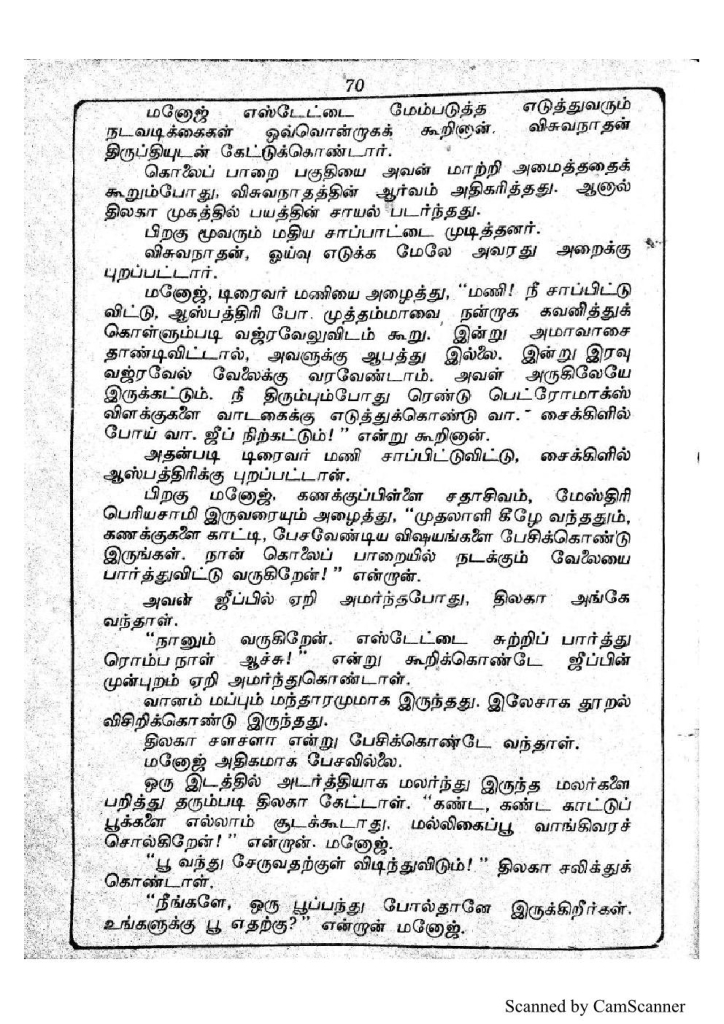 70
மனோஜ் எஸ்டேட்டை மேம்படுத்த எடுத்துவரும்
நடவடிக்கைகள் ஒவ்வொன்றாகக் கூறினான். விசுவநாதன்
திருப்தியுடன் கேட்டுக்கொண்டார்.
கொலைப் பாறை பகுதியை அவன் மாற்றி அமைத்ததைக்
கூறும்போது, விசுவநாதத்தின் ஆர்வம் அதிகரித்தது. ஆனால்
திலகா முகத்தில் பயத்தின் சாயல் படர்ந்தது.
பிறகு மூவரும் மதிய சாப்பாட்டை முடித்தனர்.
விசுவநாதன், ஓய்வு எடுக்க மேலே அவரது அறைக்கு
புறப்பட்டார்.
மனோஜ், டிரைவர் மணியை அழைத்து, “மணி! நீ சாப்பிட்டு
விட்டு, ஆஸ்பத்திரி போ. முத்தம்மாவை நன்றாக கவனித்துக்
கொள்ளும்படி வஜ்ரவேலுவிடம் கூறு. இன்று அமாவாசை
தாண்டிவிட்டால், அவளுக்கு ஆபத்து இல்லை. இன்று இரவு
வஜ்ரவேல் வேலைக்கு வரவேண்டாம். அவள் அருகிலேயே
இருக்கட்டும். நீ திரும்பும்போது ரெண்டு பெட்ரோமாக்ஸ்
விளக்குகளை வாடகைக்கு எடுத்துக்கொண்டு வா. சைக்கிளில்
போய் வா. ஜீப் நிற்கட்டும்!” என்று கூறினான்.
அதன்படி டிரைவர் மணி சாப்பிட்டுவிட்டு, சைக்கிளில்
ஆஸ்பத்திரிக்கு புறப்பட்டான்.
பிறகு மனோஜ், கணக்குப்பிள்ளை சதாசிவம், மேஸ்திரி
பெரியசாமி இருவரையும் அழைத்து, “முதலாளி கீழே வந்ததும்,
கணக்குகளை காட்டி, பேசவேண்டிய விஷயங்களை பேசிக்கொண்டு
இருங்கள். நான் கொலைப் பாறையில் நடக்கும் வேலையை
பார்த்துவிட்டு வருகிறேன்!” என்றான்.
அவன் ஜீப்பில் ஏறி அமர்ந்தபோது, திலகா அங்கே
வந்தாள்.
“நானும் வருகிறேன். எஸ்டேட்டை சுற்றிப் பார்த்து
ரொம்ப நாள் ஆச்சு!” என்று கூறிக்கொண்டே ஜீப்பின்
முன்புறம் ஏறி அமர்ந்துகொண்டாள்.
வானம் மப்பும் மந்தாரமுமாக இருந்தது. இலேசாக தூறல்
விசிறிக்கொண்டு இருந்தது.
திலகா சளசளா என்று பேசிக்கொண்டே வந்தாள்.
மனோஜ் அதிகமாக பேசவில்லை.
ஒரு இடத்தில் அடர்த்தியாக மலர்ந்து இருந்த மலர்களை
பறித்து தரும்படி திலகா கேட்டாள். “கண்ட, கண்ட காட்டுப்
பூக்களை எல்லாம் சூடக்கூடாது. மல்லிகைப்பூ வாங்கிவரச்
சொல்கிறேன்!” என்றான். மனோஜ்.
“பூ வந்து சேருவதற்குள் விடிந்துவிடும்!” திலகா சலித்துக்
கொண்டாள்.
“நீங்களே, ஒரு பூப்பந்து போல்தானே இருக்கிறீர்கள்.
உங்களுக்கு பூ எதற்கு?” என்றான் மனோஜ்.
Scanned by CamScanner